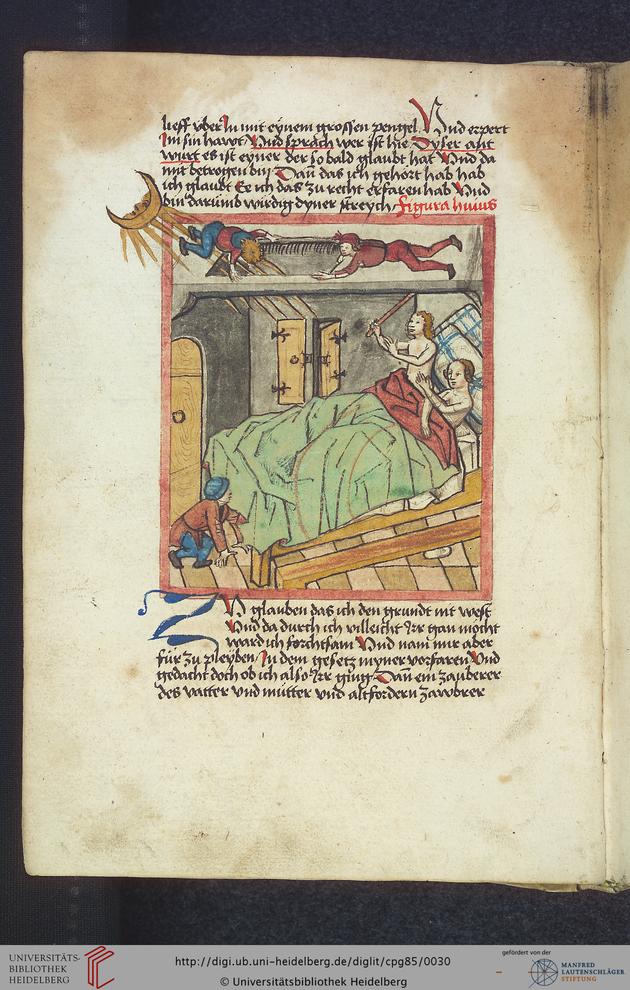 lieff vber In mit eynem grossen pengel Vnd erpert
Im sin hawt Vnd sprach wer ist hie Dyser ant
wurt es ist eyner der so bald glaubt hat Vnd da
mit betrogen bin Dan das ich gehort hab hab
ich glaubt Ee ich das zu recht erfaren hab Vnd
bin darumb wirdig dyner streych figura huius
glauben das ich den grundt nit west
Vnd da durch ich villeicht Irr gan mocht
ward ich forchtsam Vnd nam mir aber
für zu pleyben In dem gesetz myner vorfaren Vnd
gedacht doch ob ich also Irr ging Dan ein zauberer
des vatter vnd mütter vnd altfordern zawbrer
UNIVERSITÄTS-
BIBLIOTHEK
HEIDELBERG
http://digi.ub.uni-heidelberg.de/diglit/cpg85/0030
© Universitätsbibliothek Heidelberg
gefördert von der
MANFRED
LAUTENSCHLÄGER
STIFTUNG